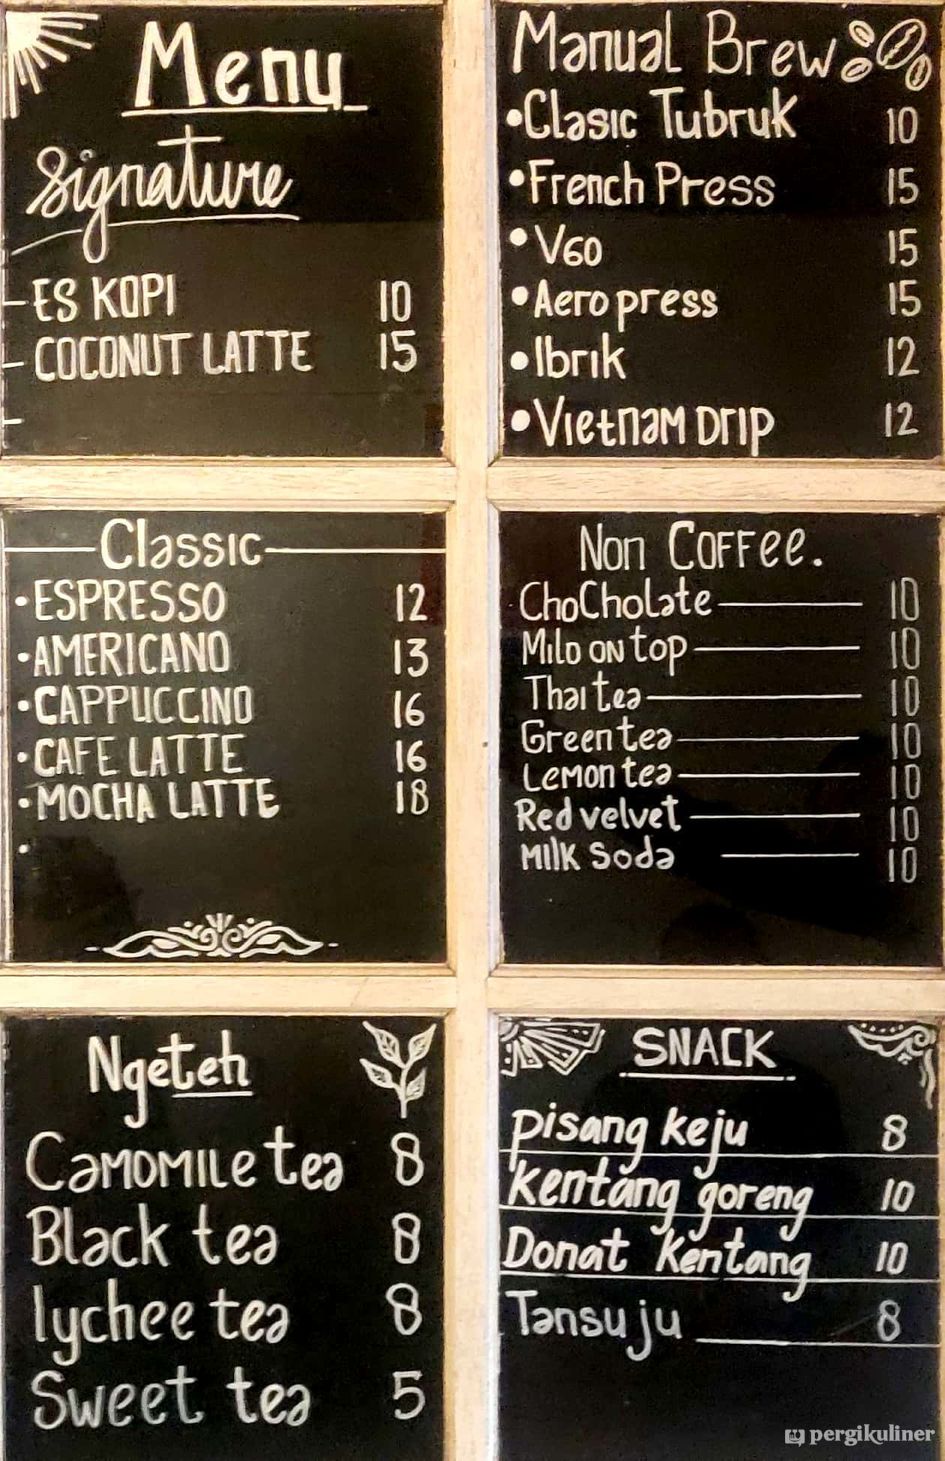 Menu
Signature
- ES KOPI 10
- COCONUT LATTE 15
-
Manual Brew
• Clasic Tubruk 10
• French Press 15
• V60 15
• Aero press 15
• Ibrik 12
• Vietnam Drip 12
Classic
• ESPRESSO 12
• AMERICANO 13
• CAPPUCCINO 16
• CAFE LATTE 16
• MOCHA LATTE 18
•
Non Coffee.
ChoCholate 10
Milo on top 10
Thai tea 10
Green tea 10
Lemon tea 10
Red velvet 10
Milk Soda 10
Ngeteh
Camomile tea 8
Black tea 8
lychee tea 8
Sweet tea 5
SNACK
pisang keju 8
kentang goreng 10
Donat kentang 10
Tansu ju 8
pergikuliner